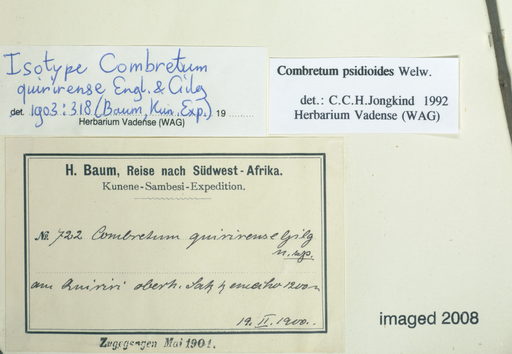 Isotype Combretum
quirirense Engl. & Gilg
det. 1903: 318 (Baum, Kun. Exp.) 19
Herbarium Vadense (WAG)
Combretum psidioides Welw.
det.: C.C.H.Jongkind 1992
Herbarium Vadense (WAG)
H. Baum, Reise nach Südwest-Afrika.
Kunene-Sambesi-Expedition.
№ 722 Combretum quirirense Gilg
n. sp.
am Quiriri oberh.
19. II. 1900.
Zugegangen Mai 1901.
imaged 2008